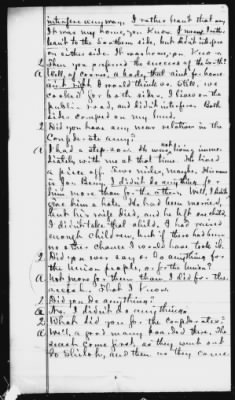 interfere any way. I rather leant that way
It was my home, you know. I may
leant to the Southern side, but didn't interfere
on either side. It was home, you know.
Q Then you preferred the success of the South?
A Well, of course, a body that aint for home
aint right I would think so. Still, we
cooked for both sides, I lived on the
public road, and didn't interfere. Both
sides camped on my land.
Q Did you have any near relation in the
Confederate Army?
A I had a step-son. He was living imme-
diately with me at that time. He lived
a piece off. Two miles, maybe. His name
is Jas. I didn't do anything for
him more than the others. Well, I
give him a hat. He had been married,
but his wife died, and he left one child
I didn't take that child. I had raised
enough children, but if there had been
no other chance I would have took it.
Q Did you ever say or do anything for
the Union people, or for the Union?
A Not more for them than I did for the
secesh. That I know.
Q Did you do anything?
A No. I didn't do anything.
Q What did you for the Confederates?
A Well, a good many passed there. The
secesh come first, as they went out
to Shiloh, and then as they came